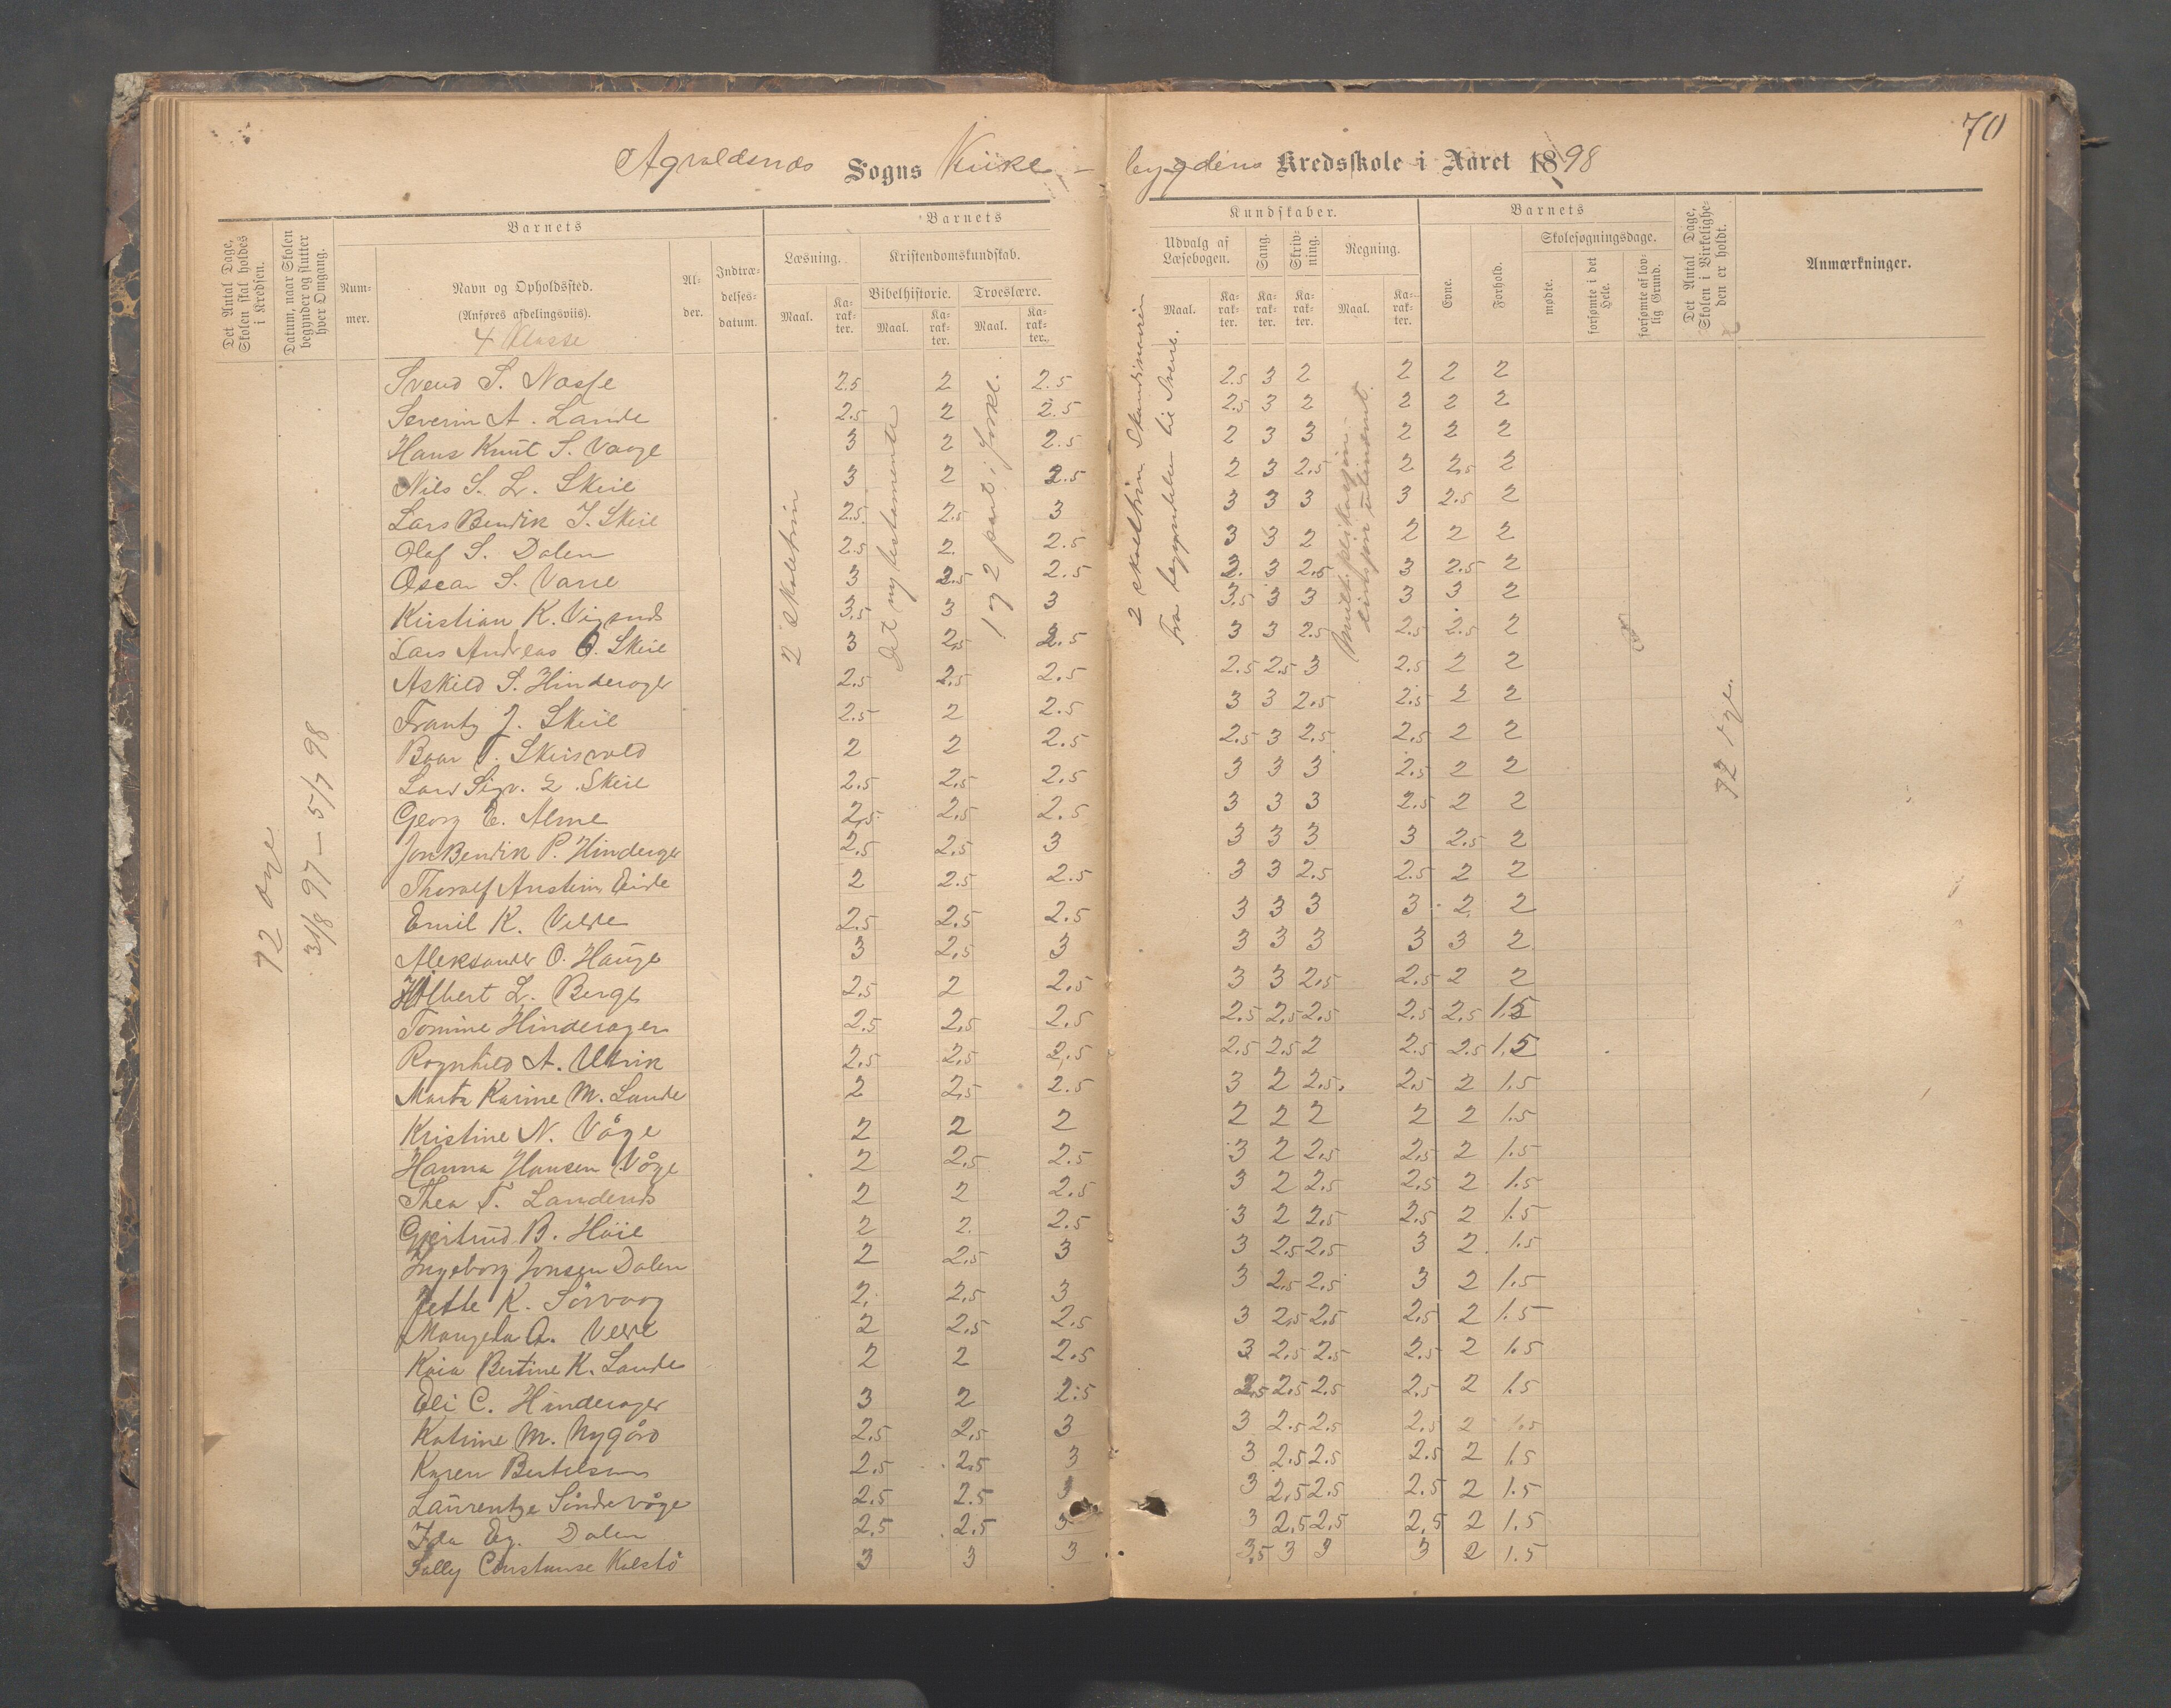 70
Agvaldsnes Sogns Kirke-
bygdens Kredsskole i Aaret 1898
Det Antal Dage, Skolen skal holdes i Kredsen.
Datum, naar Skolen begynder og slutter hver Omgang.
Barnets
Nummer.
Navn og Opholdssted.
(Anføres afdelingsviis).
4 Klasse
Alder.
Indtrædelsesdatum.
Barnets
Læsning.
Maal.
Karakter.
Kristendomskundskab.
Bibelhistorie.
Maal.
Karakter.
Troeslære.
Maal.
Karakter.
Kundskaber.
Udvalg af Læsebogen.
Maal.
Karakter.
Sang.
Karakter.
Skrivning.
Karakter.
Regning.
Maal.
Karakter.
Barnets
Evne.
Forhold.
Skolesøgningsdage.
mødte.
forsømte i det Hele.
forsømte af lovlig Grund.
Det Antal Dage, Skolen i Virkeligheden er holdt.
Anmærkninger.
72
31/8 97 – 5/7 98
2 skoletrin
Det ny testamente
1 og 2 part i forkl.
2 skoletrin
72
Svend S. Nosse 2.5 2 2.5 2.5 3 2 2 2 2
Severin A. Lande 2.5 2 2.5 2.5 3 2 2 2 2
Hans Knut S. Vaage 3 2 2.5 2 3 3 2 2 2
Nils S. L. Skeie 3 2 2.5 2 3 2.5 2 2.5 2
Lars Bendik J. Skeie 2.5 2.5 3 3 3 3 3 2.5 2
Olaf S. Dalen 2.5 2 2.5 3 3 2 2 2 2
Oscar S. Varre 3 2.5 2.5 3 3 2.5 3 2.5 2
Kristian K. Vigsnds 3.5 3 3 3.5 3 3 3 3 2
Lars Andreas O. Skeie 3 2.5 2.5 3 3 2.5 2.5 2.5 2
Askild S. Hinderager 2.5 2.5 2.5 2.5 2.5 3 2.5 2 2
Frantz J. Skeie 2.5 2 2.5 3 3 2.5 2.5 2 2
Baar T. Skeisvold 2 2 2.5 2.5 3 2.5 2.5 2 2
Lars Sigv. L. Skeie 2.5 2.5 2.5 3 3 3 2.5 2 2
Georg E. Alme 2.5 2.5 2.5 3 3 3 2.5 2 2
Jon Bendik P. Hinderager 2.5 2.5 3 3 3 3 3 2.5 2
Thoralf Austin Eide 2 2.5 2.5 3 3 2.5 2.5 2 2
Emil K. Velde 2.5 2.5 2.5 3 3 3 3 2 2
Aleksander O. Hauge 3 2.5 3 3 3 3 3 3 2
Albert L. Berge 2.5 2 2.5 3 3 2.5 2.5 2 2
Tomine Hinderager 2.5 2.5 2.5 2.5 2.5 2.5 2.5 2.5 1.5
Ragnhild A. Utvik 2.5 2.5 2.5 2.5 2.5 2 2.5 2.5 1.5
Marta Karine M. Lande 2 2.5 2.5 3 2 2.5 2.5 2 1.5
Kristine N. Våge 2 2 2 2 2 2 2 2 1.5
Hanna Hansen Våge 2 2.5 2.5 3 2 2.5 2.5 2 1.5
Thea T. Landends 2 2 2.5 3 2 2.5 2.5 2 1.5
Gjertrud B. Høie 2 2 2.5 3 2 2.5 2.5 2 1.5
Ingeborg Jonsen Dalen 2 2.5 3 3 2.5 2.5 3 2 1.5
Jette K. Sørvaag 2 2.5 3 3 2.5 2.5 3 2 1.5
Mangela A. Velde 2 2.5 2.5 3 2.5 2.5 2.5 2 1.5
Kaia Bertine K. Lande 2 2 2.5 3 2.5 2.5 2.5 2 1.5
Eli C. Hinderager 3 2 2.5 2.5 2.5 2.5 2.5 2 1.5
Katrine M. Nygård 2.5 2.5 3 3 2.5 2.5 2.5 2 1.5
Karen Bertelsen 2.5 2.5 3 3 2.5 2.5 2.5 2 1.5
Laurentze Søndrevåge 2.5 2.5 3 3 2.5 2.5 2.5 2 1.5
Ida Eg. Dalen 2.5 2.5 3 3 2.5 2.5 2.5 2 1.5
Sally Constanse Kolstø 3 3 3 3.5 3 3 3 2 1.5